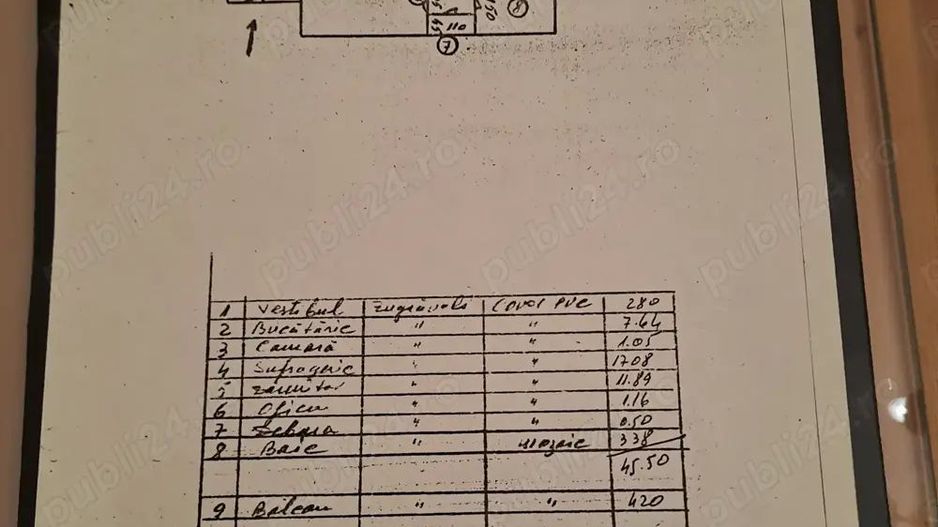 150
8
110
7
1 Vestibul zugrăveli covor PVC 280
2 Bucătărie " " 7.64
3 Camară " " 1.05
4 Sufragerie " " 17.08
5 " " 11.89
6 Oficiu " " 1.16
7 Debara " " 0.50
8 Baie " Mozaic 338
45.50
9 Balcon " " 420
publi24.ro